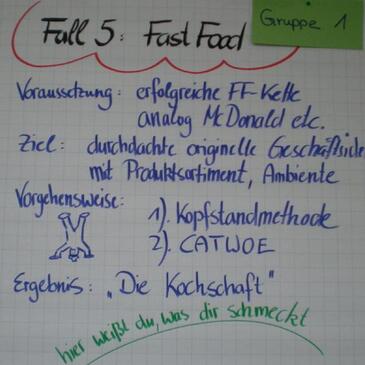 Fall 5: Fast Food
Gruppe 1
Voraussetzung: erfolgreiche FF-Kette
analog McDonald etc.
Ziel: durchdachte originelle Geschäftsidee
mit Produktsortiment, Ambiente
Vorgehensweise:
1). Kopfstandmethode
2). CATWOE
Ergebnis: „Die Kochschaft"
hier weißt du, was dir schmeckt